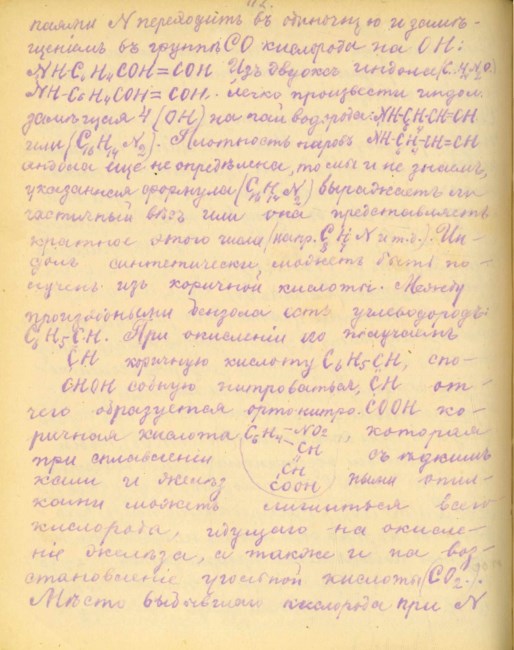 112.
паями N переходитъ въ одиночную и замѣ-
щеніемъ въ группѣ CO кислорода на OH:
NH-C6H4COH=COH Изъ двуокс индола (
NH-C6H4COH=COH. легко произвести индол.
4(OH) на пай водорода: NH-CH-CH-CH
или (C16H14N2). Плотность паровъ NH-CH-CH=CH
индола еще не опредѣлена, то мы и не знаемъ,
указанная формула (C16H14N2) выражаетъ его
частичный вѣсъ или она представляетъ
кратное этого числа (напр. C8H7N и т.д.). Ин-
долъ синтетически можетъ быть по-
лученъ изъ коричной кислоты. Между
производными бензола есть углеводородъ
C6H5CH. При окисленіи его получаемъ
CH коричную кислоту C6H5CH, спо-
CHOH собную нитроваться, CH от-
чего образуется ортонитро. COOH ко-
ричная кислота C6H4-NO2, которая
при сплавленіи -CH съ ѣдкимъ
CH
кали и желѣз COOH ными опил-
ками можетъ лишиться всего
кислорода, идущаго на окисле-
ніе желѣза, а также и на воз-
становленіе угольной кислоты (CO2).
Мѣсто выбывшаго кислорода при N